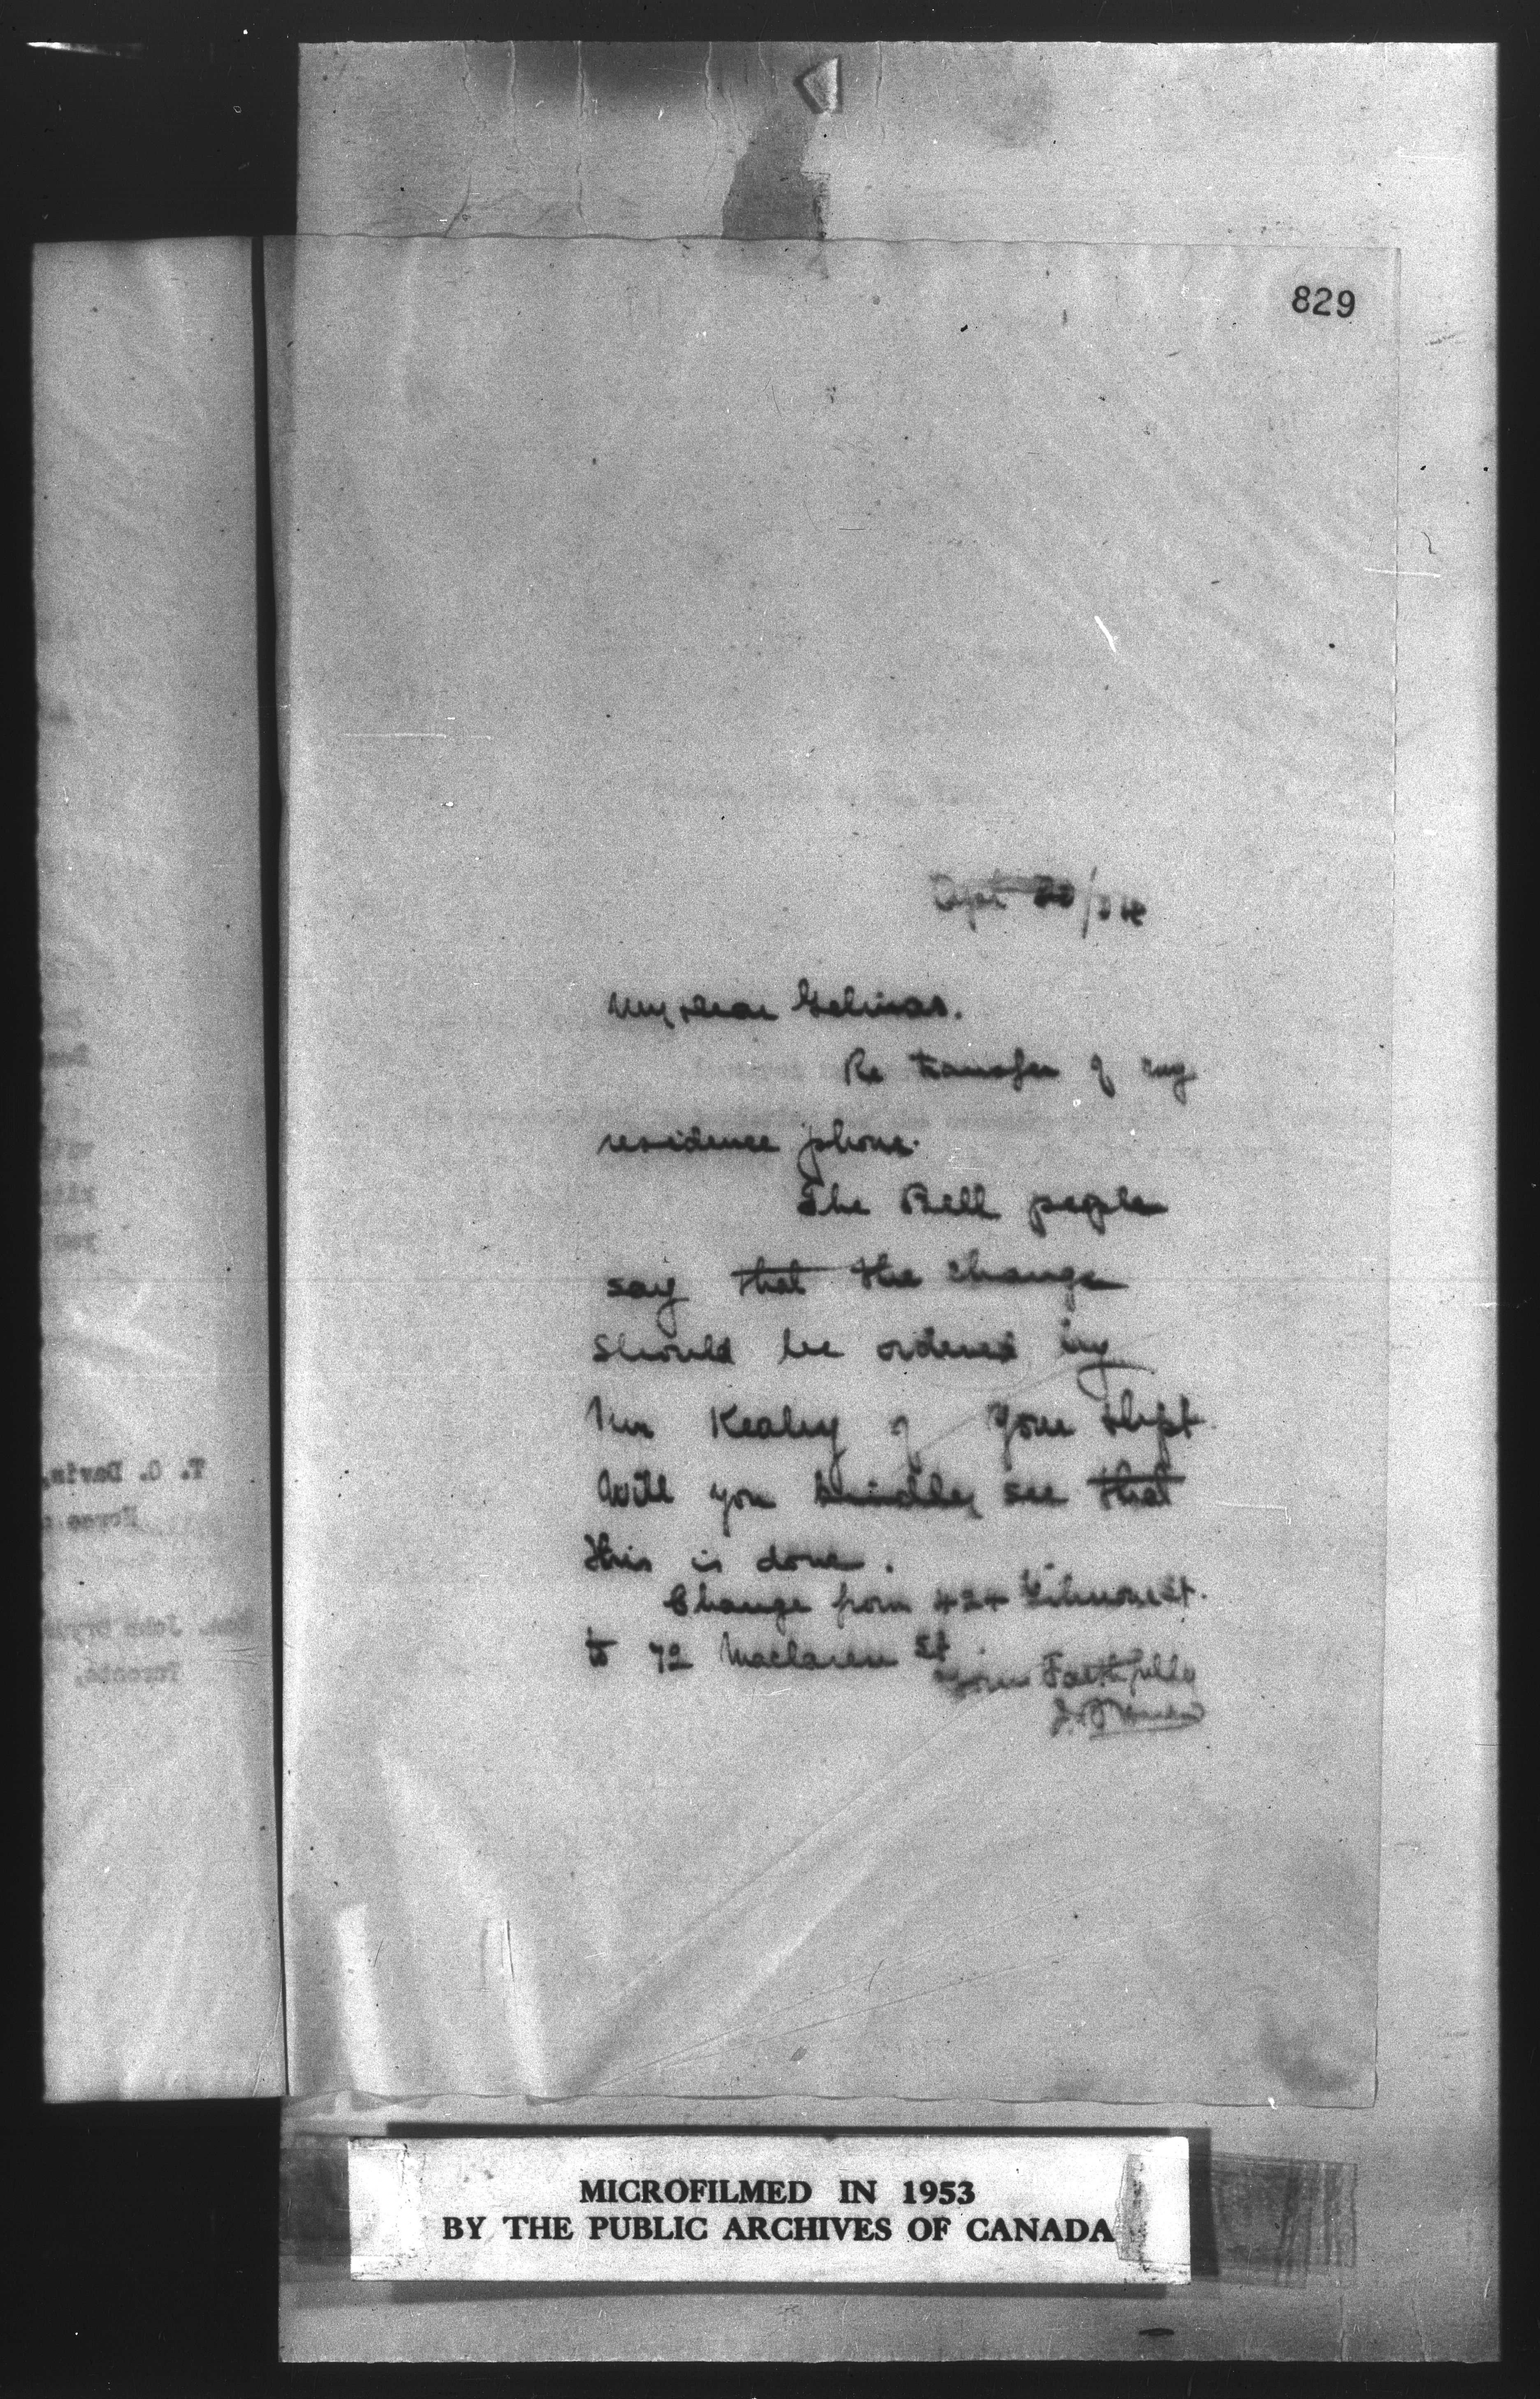 829
My dear Gelinas.
Re transfer of my
residence phone.
The Bell people
say that the change
should be ordered by
Mr Kealey of your dept.
Will you kindly see that
this is done.
Change from 424 Gilmour St.
to 72 Maclaren St
Yours Faithfully
T. O. Davis,
John
Toronto,
MICROFILMED IN 1953
BY THE PUBLIC ARCHIVES OF CANADA